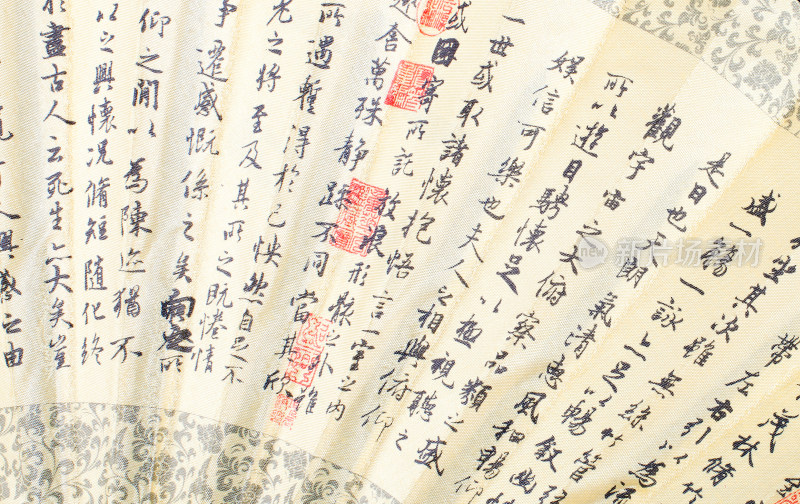 茂林
帶左右引以為流
坐其次雖無絲竹管
盛一觴一詠亦足以暢敘幽
是日也天朗氣清惠風和暢仰
觀宇宙之大俯察品類之盛
所以遊目騁懷足以極視聽之
娛信可樂也夫人之相與俯仰
一世或取諸懷抱悟言一室之內
或因寄所託放浪形骸之外雖
舍萬殊靜躁不同當其欣
所遇暫得於己怏然自足不
老之將至及其所之既惓情
事遷感慨係之矣向之所
仰之閒以為陳迹猶不
以之興懷況脩短隨化終
於盡古人云死生亦大矣豈
人興感之由
新片场 素材